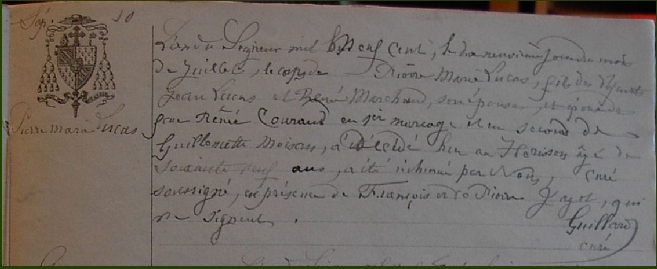 Sép. 10
Pierre Marie Lucas
L'an du Seigneur mil neuf cent, le dix neuvième jour du mois
de Juillet, le corps de Pierre Marie Lucas, fils des défunts
Jean Lucas et Renée Marchand, son épouse, et époux de
feue Renée Couraud en 1er mariage et en second de
Guillemette Moison, a Décédé hier au Hérisson âgé de
Soixante neuf ans, a été inhumé par Nous, curé
soussigné, en présence de François et de Pierre Jagot, qui
ne signent.
Guillard
curé